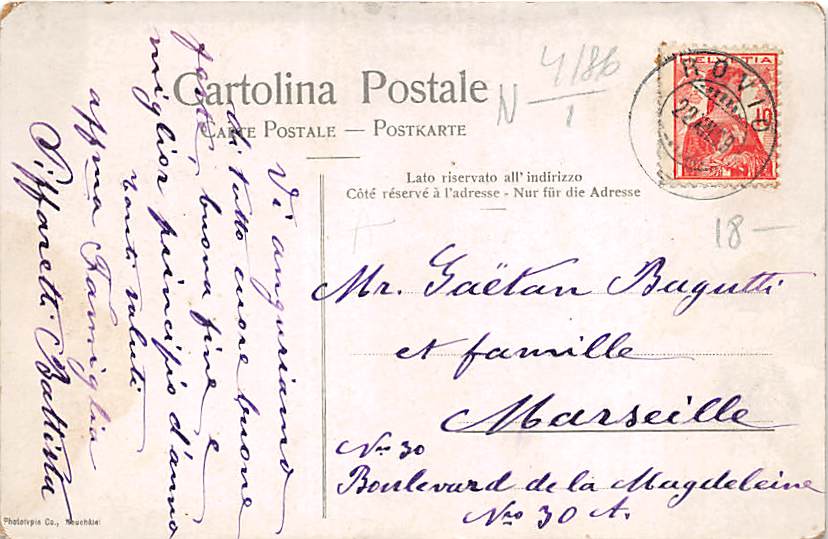 Cartolina Postale
CARTE POSTALE — POSTKARTE
N 4/86
1
HELVETIA
10
ROVIO
Lato riservato all' indirizzo
Côté réservé à l'adresse - Nur für die Adresse
18 —
Vi auguriamo
di tutto cuore buone
feste, buona fine e
miglior principio d'anno
tanti saluti
affma Famiglia
Piffaretti Battista
Mr. Gaëtan Bagutti
et famille
Marseille
No 30
Boulevard de la Magdeleine
Nro 30 A.
Phototypie Co., Neuchâtel